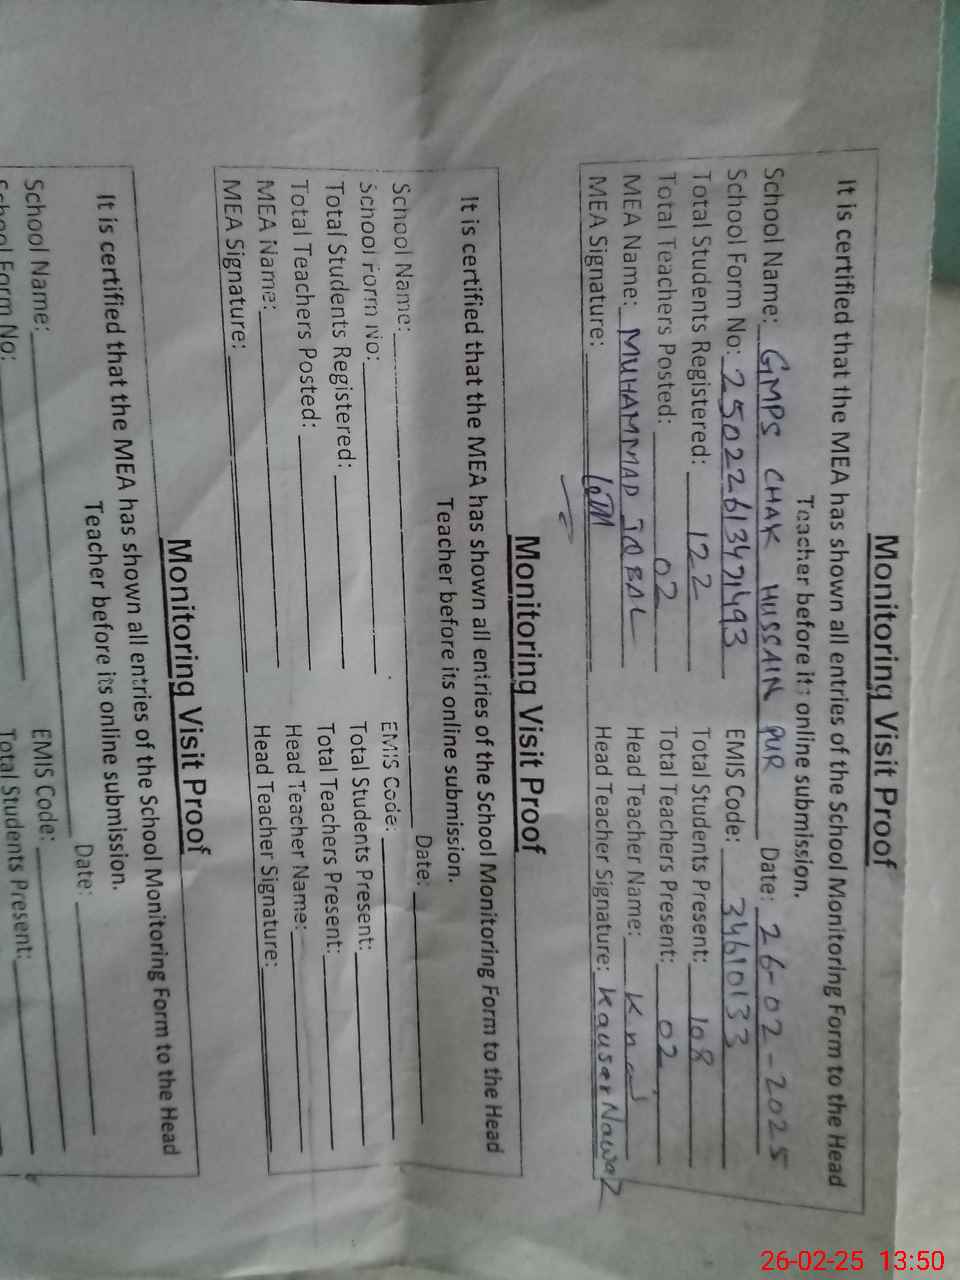 Monitoring Visit Proof
It is certified that the MEA has shown all entries of the School Monitoring Form to the Head
Teacher before its online submission.
School Name: GMPS CHAK HUSSAIN PUR Date: 26-02-2025
School Form No: EMIS Code: 34610133
Total Students Registered: 122 Total Students Present: 108
Total Teachers Posted: 02 Total Teachers Present: 02
MEA Name: MUHAMMAD IQBAL Head Teacher Name:
MEA Signature: Head Teacher Signature: Kauser Nawaz
Monitoring Visit Proof
It is certified that the MEA has shown all entries of the School Monitoring Form to the Head
Teacher before its online submission.
School Name: Date:
School Form No: EMIS Code:
Total Students Registered: Total Students Present:
Total Teachers Posted: Total Teachers Present:
MEA Name: Head Teacher Name:
MEA Signature: Head Teacher Signature:
Monitoring Visit Proof
It is certified that the MEA has shown all entries of the School Monitoring Form to the Head
Teacher before its online submission.
School Name: Date:
School Form No: EMIS Code:
Total Students Present:
26-02-25 13:50